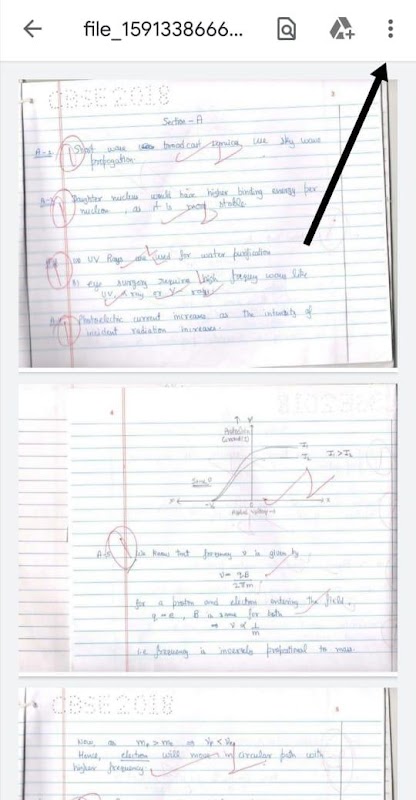 file_1591338666...
CBSE 2018
3
Section - A
A-1. Short wave broadcast services use sky wave
propogation.
Daughter nucleus would have higher binding energy per
nucleon, as it is more stable.
a) UV Rays are used for water purification
b) eye surgery requires high frequency waves like
UV, x ray or γ rays
Photoelectric current increases as the intensity of
incident radiation increases.
4
CBSE 2018
Y
I₁
I₂
I₁ > I₂
Same ν
x
-V₀
0
X
A-5
We know that frequency ν is given by
ν = qB
2πm
for a proton and electron entering the field,
q = e, B is same for both
⇒ ν ∝ 1
m
i.e. frequency is inversely proportional to mass
CBSE 2018
5
Now, as mₚ > mₑ ⇒ νₚ < νₑ
Hence, electron will move in circular path with
higher frequency.